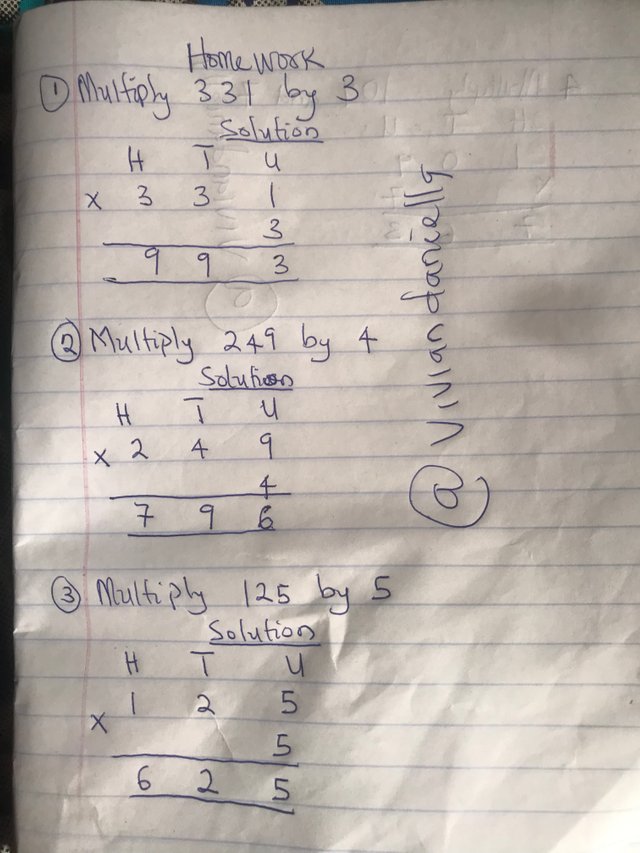 Homework
① Multiply 331 by 3
Solution
H T U
x 3 3 1
3
9 9 3
② Multiply 249 by 4
Solution
H T U
x 2 4 9
4
7 9 6
③ Multiply 125 by 5
Solution
H T U
x 1 2 5
5
6 2 5
@Viviandanielly